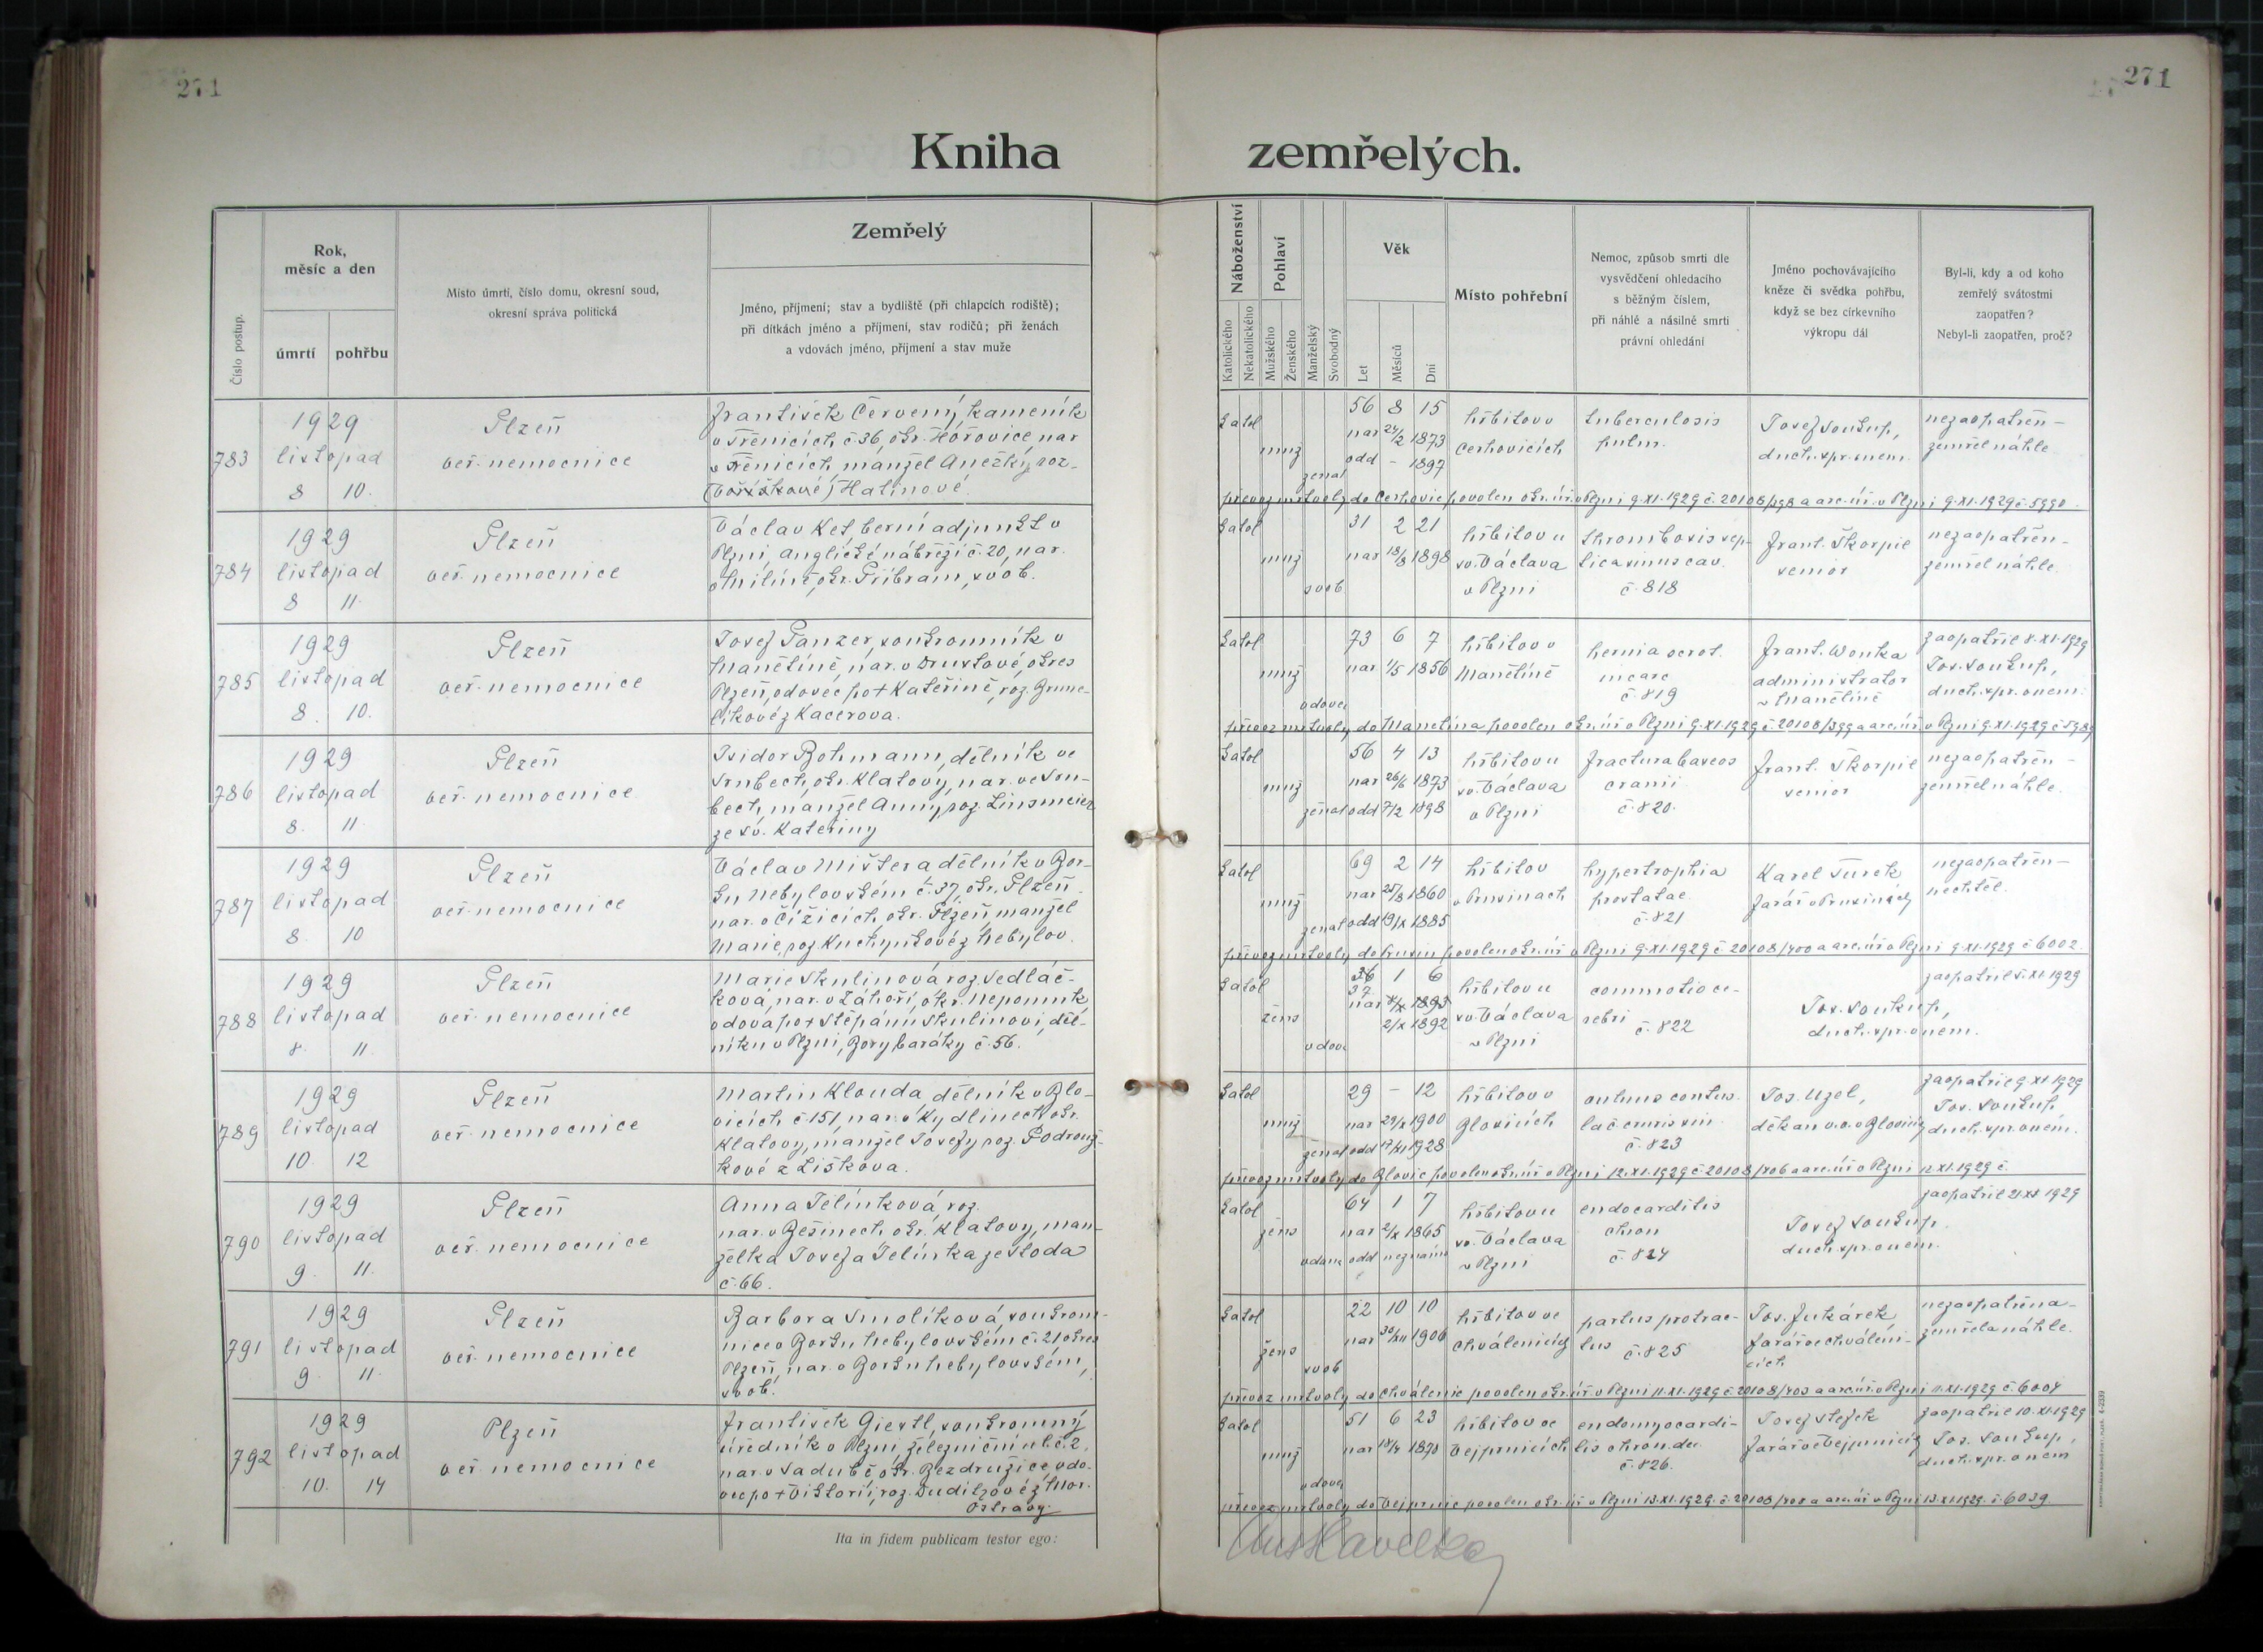 271
271
Kniha zemřelých.
Číslo postup.
Rok, měsíc a den
úmrtí
pohřbu
Místo úmrtí, číslo domu, okresní soud, okresní správa politická
Zemřelý
Jméno, příjmení; stav a bydliště (při chlapcích rodiště);
při dítkách jméno a příjmení, stav rodičů; při ženách
a vdovách jméno, příjmení a stav muže
Náboženství
Katolického
Nekatolického
Pohlaví
Mužského
Ženského
Manželský
Svobodný
Věk
Let
Měsíců
Dní
Místo pohřební
Nemoc, způsob smrti dle
vysvědčení ohledacího
s běžným číslem,
při náhlé a násilné smrti
právní ohledání
Jméno pochovávajícího
kněze či svědka pohřbu,
když se bez církevního
výkropu dál
Byl-li, kdy a od koho
zemřelý svátostmi
zaopatřen?
Nebyl-li zaopatřen, proč?
783
1929
listopad
8 10.
Plzeň
veř. nemocnice
František Červený, kameník
v Třenicích č. 36, okr. Hořovice, nar.
v Třenicích, manžel Anežky, roz.
Hatinové.
katol
muž
ženat
56 8 15
nar 24/2 1873
odd – 1897
hřbitov v
Cerhovicích
tuberculosis
pulm.
Josef Soukup,
duch. spr. v nem.
nezaopatřen –
zemřel náhle
převoz mrtvoly do Cerhovic povolen okr. úř. v Plzni 9.XI.1929 č. 20108/398 a arc. úř. v Plzni 9.XI.1929 č. 5990.
784
1929
listopad
8 11.
Plzeň
veř. nemocnice
Václav Ket, berní adjunkt v
Plzni Anglické nábřeží č. 20, nar.
v Milíně, okr. Příbram, svob.
katol
muž
svob
31 2 21
nar 18/8 1898
hřbitov u
sv. Václava
v Plzni
thrombosis sep-
tica sinus cav.
č. 818
Frant. Škorpil
senior
nezaopatřen –
zemřel náhle.
785
1929
listopad
8. 10.
Plzeň
veř. nemocnice
Josef Panzer, soukromník v
Manětíně, nar. v Druztové, okres
Plzeň, vdovec po + Kateřině, roz. Grunc-
líkové z Kacerova.
katol
muž
vdovec
73 6 7
nar 1/5 1856
hřbitov v
Manětíně
hernia scrot.
incarc
č. 819
Frant. Wonka
administrator
v Manětíně
zaopatřil 8.XI.1929
Jos. Soukup,
duch. spr. v nem.
převoz mrtvoly do Manětína povolen okr. úř. v Plzni 9.XI.1929 č. 20108/399 a arc. úř. v Plzni 9.XI.1929 č. 5989
786
1929
listopad
8. 11.
Plzeň
veř. nemocnice
Isidor Bohmann, dělník ve
Srnbech, okr. Klatovy, nar. ve Srn-
bech, manžel Anny, roz. Linsmeier
ze sv. Kateřiny
katol
muž
ženat
56 4 13
nar 26/6 1873
odd 7/2 1898
hřbitov u
sv. Václava
v Plzni
fractura baseos
cranii
č. 820.
Frant. Škorpil
senior
nezaopatřen –
zemřel náhle.
787
1929
listopad
8. 10
Plzeň
veř. nemocnice
Václav Mištera dělník v Bor-
ku Nebylovském č. 37, okr. Plzeň
nar. v Čížicích, okr. Plzeň manžel
Marie, roz. Kuchynkové z Nebylov.
katol
muž
ženat
69 2 14
nar 25/8 1860
odd 19/X 1885
hřbitov
v Prusinach
hypertrophia
prostatae
č. 821
Karel Turek
farář v Prusinách
nezaopatřen –
nechtěl.
převoz mrtvoly do Prusin povolen okr. úř. v Plzni 9.XI.1929 č. 20108/400 a arc. úř. v Plzni 9.XI.1929 č. 6002.
788
1929
listopad
8. 11.
Plzeň
veř. nemocnice
Marie Skulinová roz. Sedláč-
ková, nar. v Záhoří, okr. Nepomuk
vdova po + Štěpánu Skulinovi, děl-
níku v Plzni, Bory baráky č. 56.
katol
žens
vdova
36 1 6
37
nar 1893
2/X 1892
hřbitov u
sv. Václava
v Plzni
commotio ce-
rebri č. 822
Jos. Soukup,
duch. spr. v nem.
zaopatřil 5.XI.1929
789
1929
listopad
10. 12
Plzeň
veř. nemocnice
Martin Klouda, dělník v Blo-
vicích č. 151, nar. v Kydlinech okr.
Klatovy, manžel Josefy roz. Podrouž-
kové z Liškova.
katol
muž
ženat
29 – 12
nar 29/X 1900
odd 17/XI 1928
hřbitov v
Blovicích
vulnus contus.
lac. cruris sin.
č. 823
Jos. Uzel,
děkan v.v. v Blovicích
zaopatřil 9.XI.1929
Jos. Soukup,
duch. spr. v nem.
převoz mrtvoly do Blovic povolen okr. úř. v Plzni 12.XI.1929 č. 20108/406 a arc. úř. v Plzni 12.XI.1929 č.
790
1929
listopad
9. 11.
Plzeň
veř. nemocnice
Anna Jelínková, roz.
nar. v Bešinech, okr. Klatovy, man-
želka Josefa Jelínka ze Stoda
č. 66.
katol
žens
vdaná
64 1 7
nar 2/X 1865
odd neznámo
hřbitov u
sv. Václava
v Plzni
endocarditis
chron
č. 824
Josef Soukup.
duch. spr. v nem.
zaopatřil 2.XI.1929
791
1929
listopad
9. 11.
Plzeň
veř. nemocnice
Barbora Smolíková, soukrom-
nice v Borku Nebylovském č. 21 okres
Plzeň, nar. v Borku Nebylovském,
svob.
katol
žens
svob
22 10 10
nar 30/XII 1906
hřbitov ve
Chválenicích
partus protrac-
tus č. 825
Jos. Fukárek
farář ve Chválени-
cích
nezaopatřena –
zemřela náhle.
převoz mrtvoly do Chválenic povolen okr. úř. v Plzni 11.XI.1929 č. 20108/403 a arc. úř. v Plzni 11.XI.1929 č. 6004
792
1929
listopad
10. 14
Plzeň
veř. nemocnice
František Giertl, soukromný
úředník v Plzni, železniční ul. č. 2,
nar. v Zádubě okr. Bezdružice, vdo-
vec po + Viktorii, roz. Dudikové z Mor.
Ostravy.
katol
muž
vdovec
51 6 23
nar 18/4 1878
hřbitov ve
Vejprnicích
endomyocardi-
tis chron. dec.
č. 826.
Josef Stejek
farář ve Vejprnicích
zaopatřil 10.XI.1929
Jos. Soukup,
duch. spr. v nem
převoz mrtvoly do Vejprnic povolen okr. úř. v Plzni 13.XI.1929. č. 20108/408 a arc. úř. v Plzni 13.XI.1929. č. 6039.
Ita in fidem publicam testor ego: